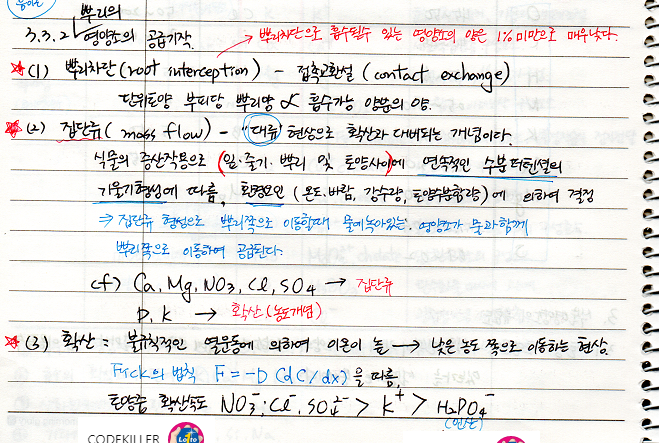 뿌리의
3.3.2 영양소의 공급기작.
→ 뿌리차단으로 흡수될수 있는 영양소의 양은 1% 미만으로 매우낮다.
★(1) 뿌리차단(root interception) - 접촉교환설 (contact exchange)
단위토양 부피당 뿌리양 ∝ 흡수가능 양분의 양.
★(2) 집단류(mass flow) - "대류" 현상으로 확산과 대비되는 개념이다.
식물의 증산작용으로 (잎·줄기·뿌리 및 토양사이)에 연속적인 수분퍼텐셜의
기울기형성에 따름, 환경요인(온도,바람, 강수량, 토양수분함량)에 의하여 결정
⇒ 집단류 형성으로 뿌리쪽으로 이동할때 물에녹아있는 영양소가 물과함께
뿌리쪽으로 이동하여 공급된다.
cf) Ca, Mg, NO3, Cl, SO4 → 집단류
P, K → 확산(농도개념)
★(3) 확산 : 불규칙적인 열운동에 의하여 이온이 높 → 낮은 농도 쪽으로 이동하는 현상.
Fick의 법칙 F = -D (dC/dx)을 따름,
토양중 확산속도 NO3⁻, Cl⁻, SO4²⁻ > K⁺ > H2PO4⁻
(인산)
CODEKILLER